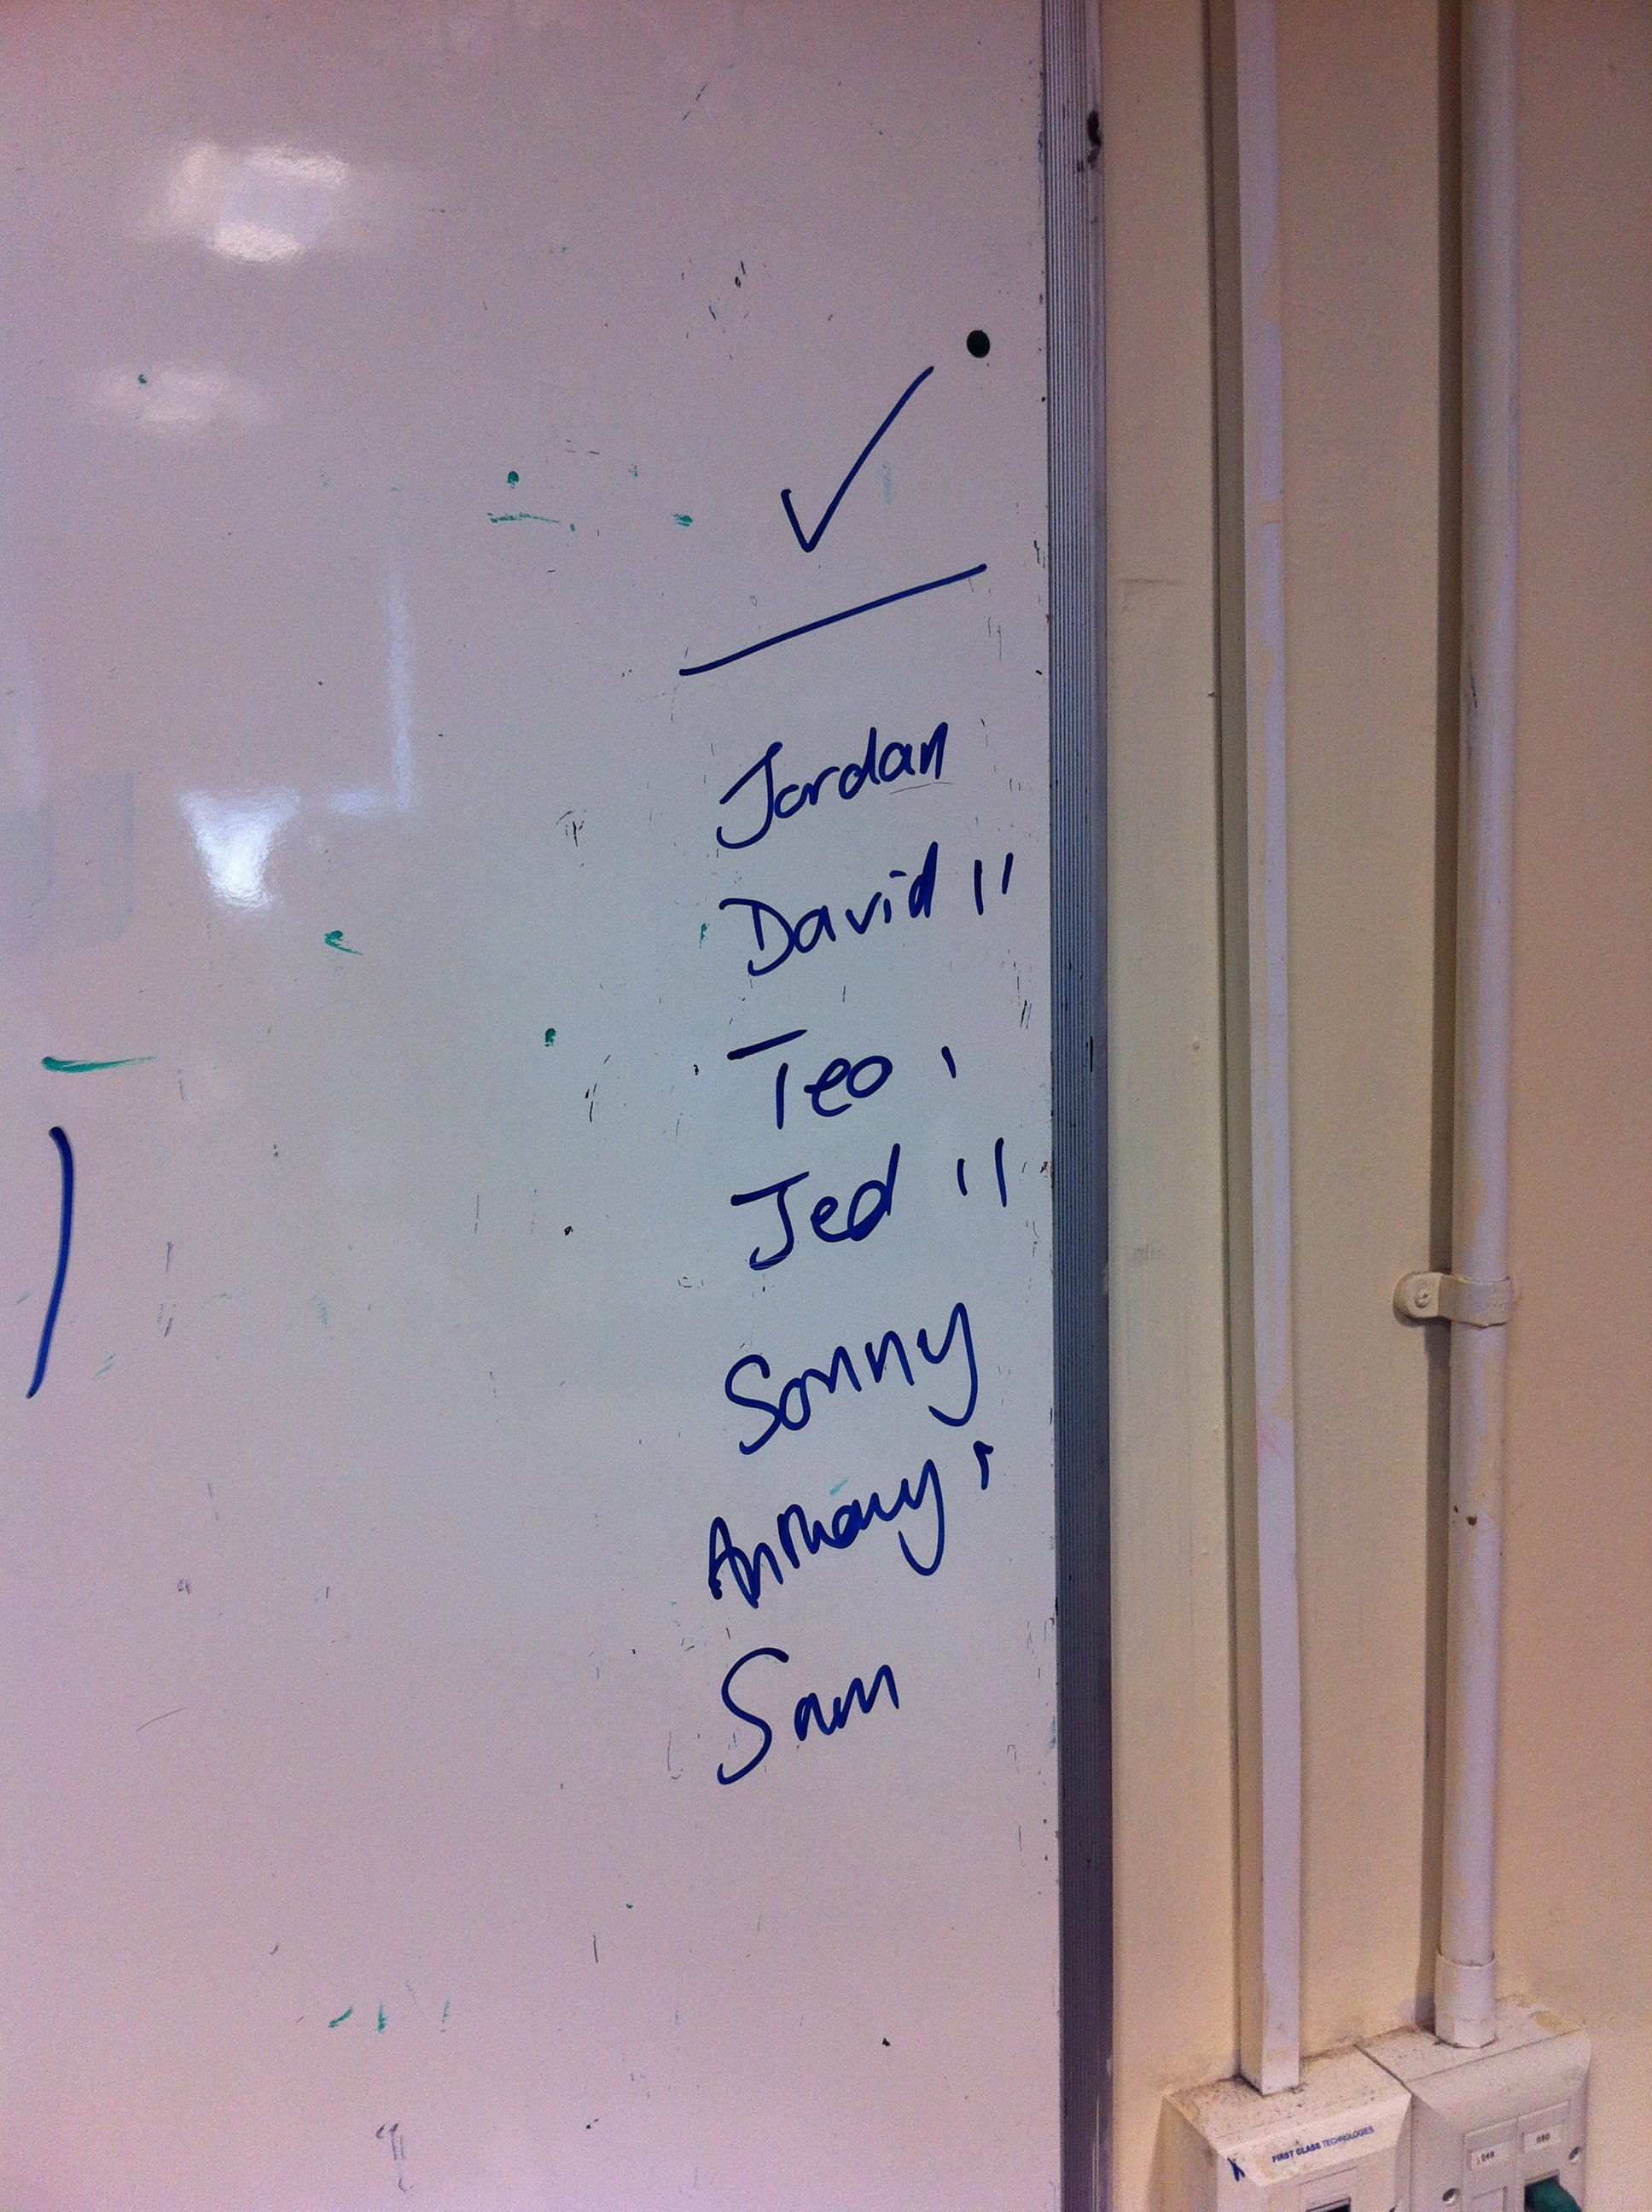 ✓
Jordan
David ||
Teo |
Jed ||
Sonny
Anthony |
Sam
FIRST CLASS TECHNOLOGIES